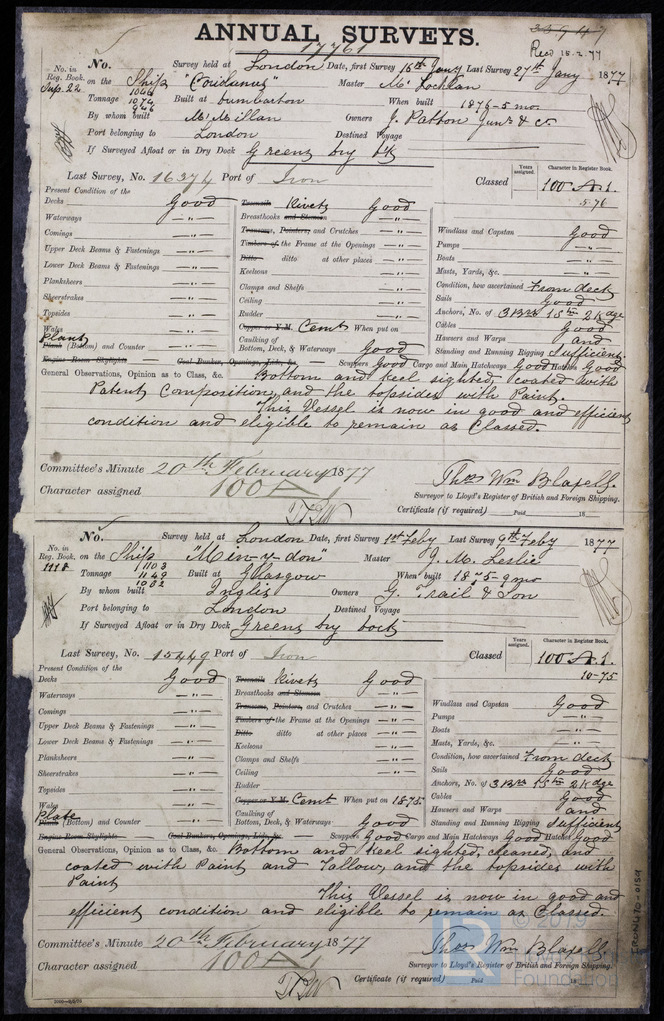 ANNUAL SURVEYS.
17761
Recd 15.2.77
No. Survey held at London Date, first Survey 16th Jany Last Survey 27th Jany 1877
No. in Reg. Book. Sup. 22 on the Ship "Coriolanus" Master McLachlan
Tonnage 1046 1074 946 Built at Dumbarton When built 1876-5 mo.
By whom built McMillan Owners J. Patton Junr & Co
Port belonging to London Destined Voyage
If Surveyed Afloat or in Dry Dock Greens dry Dk
Last Survey, No. 16374 Port of Iron Classed
Years assigned.
Character in Register Book.
100 A1.
5.76
Present Condition of the
Decks Good
Waterways — " —
Comings — " —
Upper Deck Beams & Fastenings — " —
Lower Deck Beams & Fastenings — " —
Planksheers — " —
Sheerstrakes — " —
Topsides — " —
Wales — " —
Plank (Bottom) and Counter — " —
Engine Room Skylights
Treenails Rivets Good
Breasthooks and Stemson — " —
Transoms, Pointers, and Crutches — " —
Timbers of the Frame at the Openings — " —
Ditto ditto at other places — " —
Keelsons — " —
Clamps and Shelfs — " —
Ceiling — " —
Rudder — " —
Copper or Y.M. Cemt When put on
Caulking of Bottom, Deck, & Waterways Good
Coal Bunker, Openings, Lids, &c.
Windlass and Capstan Good
Pumps — " —
Boats — " —
Masts, Yards, &c. — " —
Condition, how ascertained From deck
Sails Good
Anchors, No. of 3 Brs 1 Stm 2 Kdge
Cables Good
Hawsers and Warps and
Standing and Running Rigging Sufficient
Scuppers Good Cargo and Main Hatchways Good Hatches Good
General Observations, Opinion as to Class, &c. Bottom and keel sighted, coated with
Patent Composition, and the topsides with Paint.
This Vessel is now in good and efficient
condition and eligible to remain as Classed.
Committee's Minute 20th February 1877
Character assigned 100 A
Thos Wm Blaxell.
Surveyor to Lloyd's Register of British and Foreign Shipping.
Certificate (if required) Paid 18
No. Survey held at London Date, first Survey 1st Feby Last Survey 9th Feby 1877
No. in Reg. Book. 1118 on the Ship "Men-y-don" Master J. M. Leslie
Tonnage 1103 1149 1082 Built at Glasgow When built 1875-9mo
By whom built Inglis Owners G. Trail & Son
Port belonging to London Destined Voyage
If Surveyed Afloat or in Dry Dock Greens dry dock
Last Survey, No. 15449 Port of Iron Classed
Years assigned.
Character in Register Book.
100 A1.
10-75
Present Condition of the
Decks Good
Waterways — " —
Comings — " —
Upper Deck Beams & Fastenings — " —
Lower Deck Beams & Fastenings — " —
Planksheers — " —
Sheerstrakes — " —
Topsides — " —
Wales — " —
Plate Plank (Bottom) and Counter — " —
Engine Room Skylights
Treenails Rivets Good
Breasthooks and Stemson — " —
Transoms, Pointers, and Crutches — " —
Timbers of the Frame at the Openings — " —
Ditto ditto at other places — " —
Keelsons — " —
Clamps and Shelfs — " —
Ceiling — " —
Rudder — " —
Copper or Y.M. Cemt When put on 1875.
Caulking of Bottom, Deck, & Waterways Good
Coal Bunkers, Openings, Lids, &c.
Windlass and Capstan Good
Pumps — " —
Boats — " —
Masts, Yards, &c. — " —
Condition, how ascertained From deck
Sails Good
Anchors, No. of 3 Brs 1 Stm 2 Kdge
Cables Good
Hawsers and Warps and
Standing and Running Rigging Sufficient
Scuppers Good Cargo and Main Hatchways Good Hatches Good
General Observations, Opinion as to Class, &c. Bottom and keel sighted, cleaned, and
coated with Paint and Tallow, and the topsides with
Paint
This Vessel is now in good and
efficient condition and eligible to remain as Classed.
Committee's Minute 20th February 1877
Character assigned 100 A
Thos Wm Blaxell.
Surveyor to Lloyd's Register of British and Foreign Shipping.
Certificate (if required) Paid 18
IRON470-0159